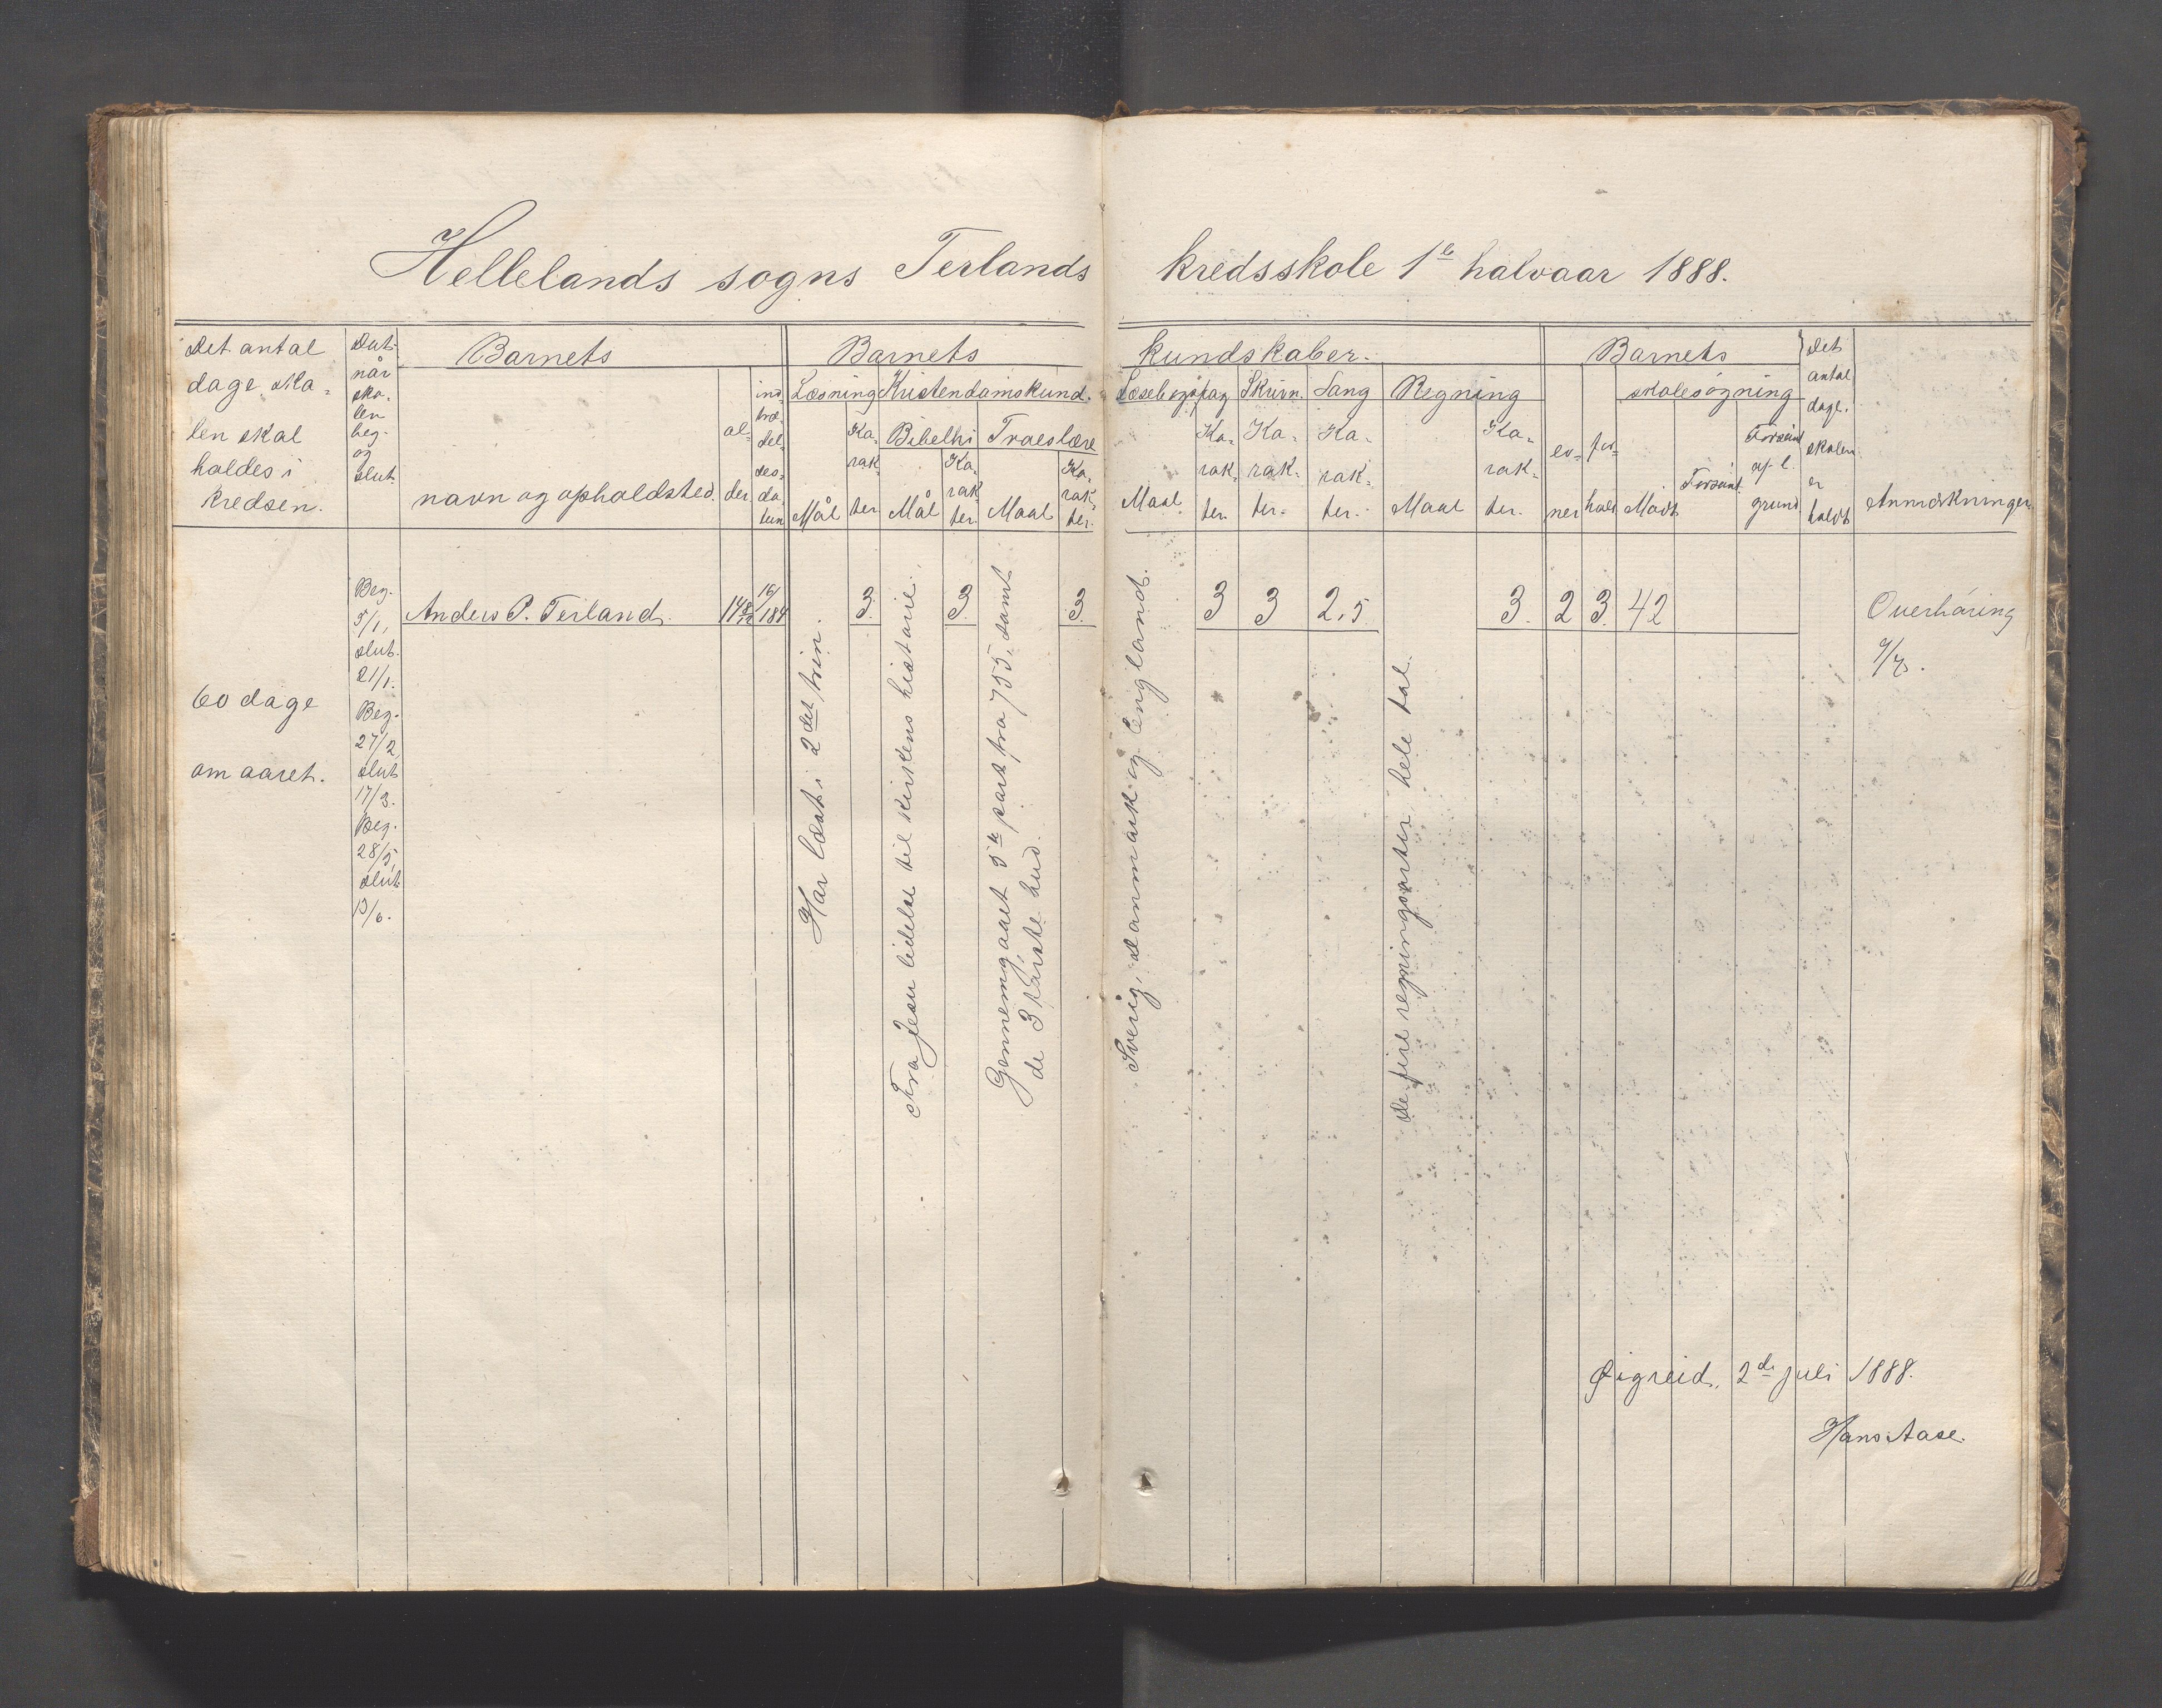 Hellelands sogns Terlands kredsskole 1te halvaar 1888.
Det antal
dage sko-
len skal
holdes i
kredsen.
Dat.
når
sko-
len
beg.
og
slut.
Barnets
navn og opholdsted.
al-
der
ind-
træ-
del-
ses-
da-
tum
Barnets kundskaber.
Læsning
Mål
Ka-
rak-
ter
Kristendomskund.
Bibelhi
Mål
Ka-
rak-
ter.
Troeslære
Maal
Ka-
rak-
ter.
Læsebogsfag
Maal
Ka-
rak-
ter.
Skrivn.
Ka-
rak-
ter.
Sang
Ka-
rak-
ter.
Regning
Maal
Ka-
rak-
ter.
ev-
ner
for-
hold
Barnets
skolesøgning
Mødt
Forsømt
Forsømt
af l.
grund
Det
antal
dage.
skolen
er
holdt
Anmærkninger
60 dage
om aaret.
Beg.
5/1,
slut.
21/1.
Beg.
27/2
slut
17/3.
Beg.
28/5,
slut
13/6.
Anders P. Terland. 14 16/184 3. 3. 3. 3 3 2,5 3. 2 3. 42 Overhöring
Har læst i 2det trin.
Fra Jesu lidelse til kirkens historie.
Gennemgaaet 5te part fra 755, samt
de 3 første bud.
Sverig, Danmark og England.
De fire regningsarter hele tal.
Øigreid, 2de juli 1888.
Hans Aase.